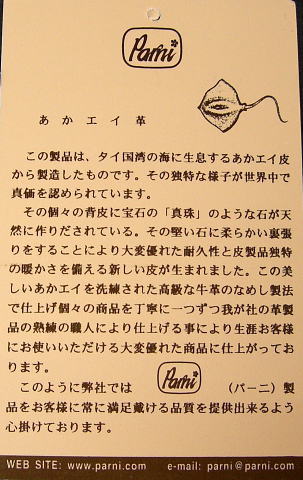 Parni
あかエイ革
この製品は、タイ国湾の海に生息するあかエイ皮
から製造したものです。その独特な様子が世界中で
真価を認められています。
その個々の背皮に宝石の「真珠」のような石が天
然に作りだされている。その堅い石に柔らかい裏張
りをすることにより大変優れた耐久性と皮製品独特
の暖かさを備える新しい皮が生まれました。この美
しいあかエイを洗練された高級な牛革のなめし製法
で仕上げ個々の商品を丁寧に一つずつ我が社の革製
品の熟練の職人により仕上げる事により生涯お客様
にお使いいただける大変優れた商品に仕上がってお
ります。
このように弊社では Parni (パーニ)製
品をお客様に常に満足戴ける品質を提供出来るよう
心掛けております。
WEB SITE: www.parni.com e-mail: parni@parni.com